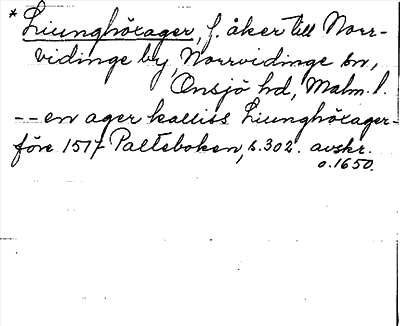 * Liunghöxager, f. åker till Norr-
vidinge by, Norrvidinge sn,
Onsjö hd, Malm. l.
-- en ager kalliss Liunghöxager -
före 1517 Palteboken, s. 302. avskr.
o. 1650.